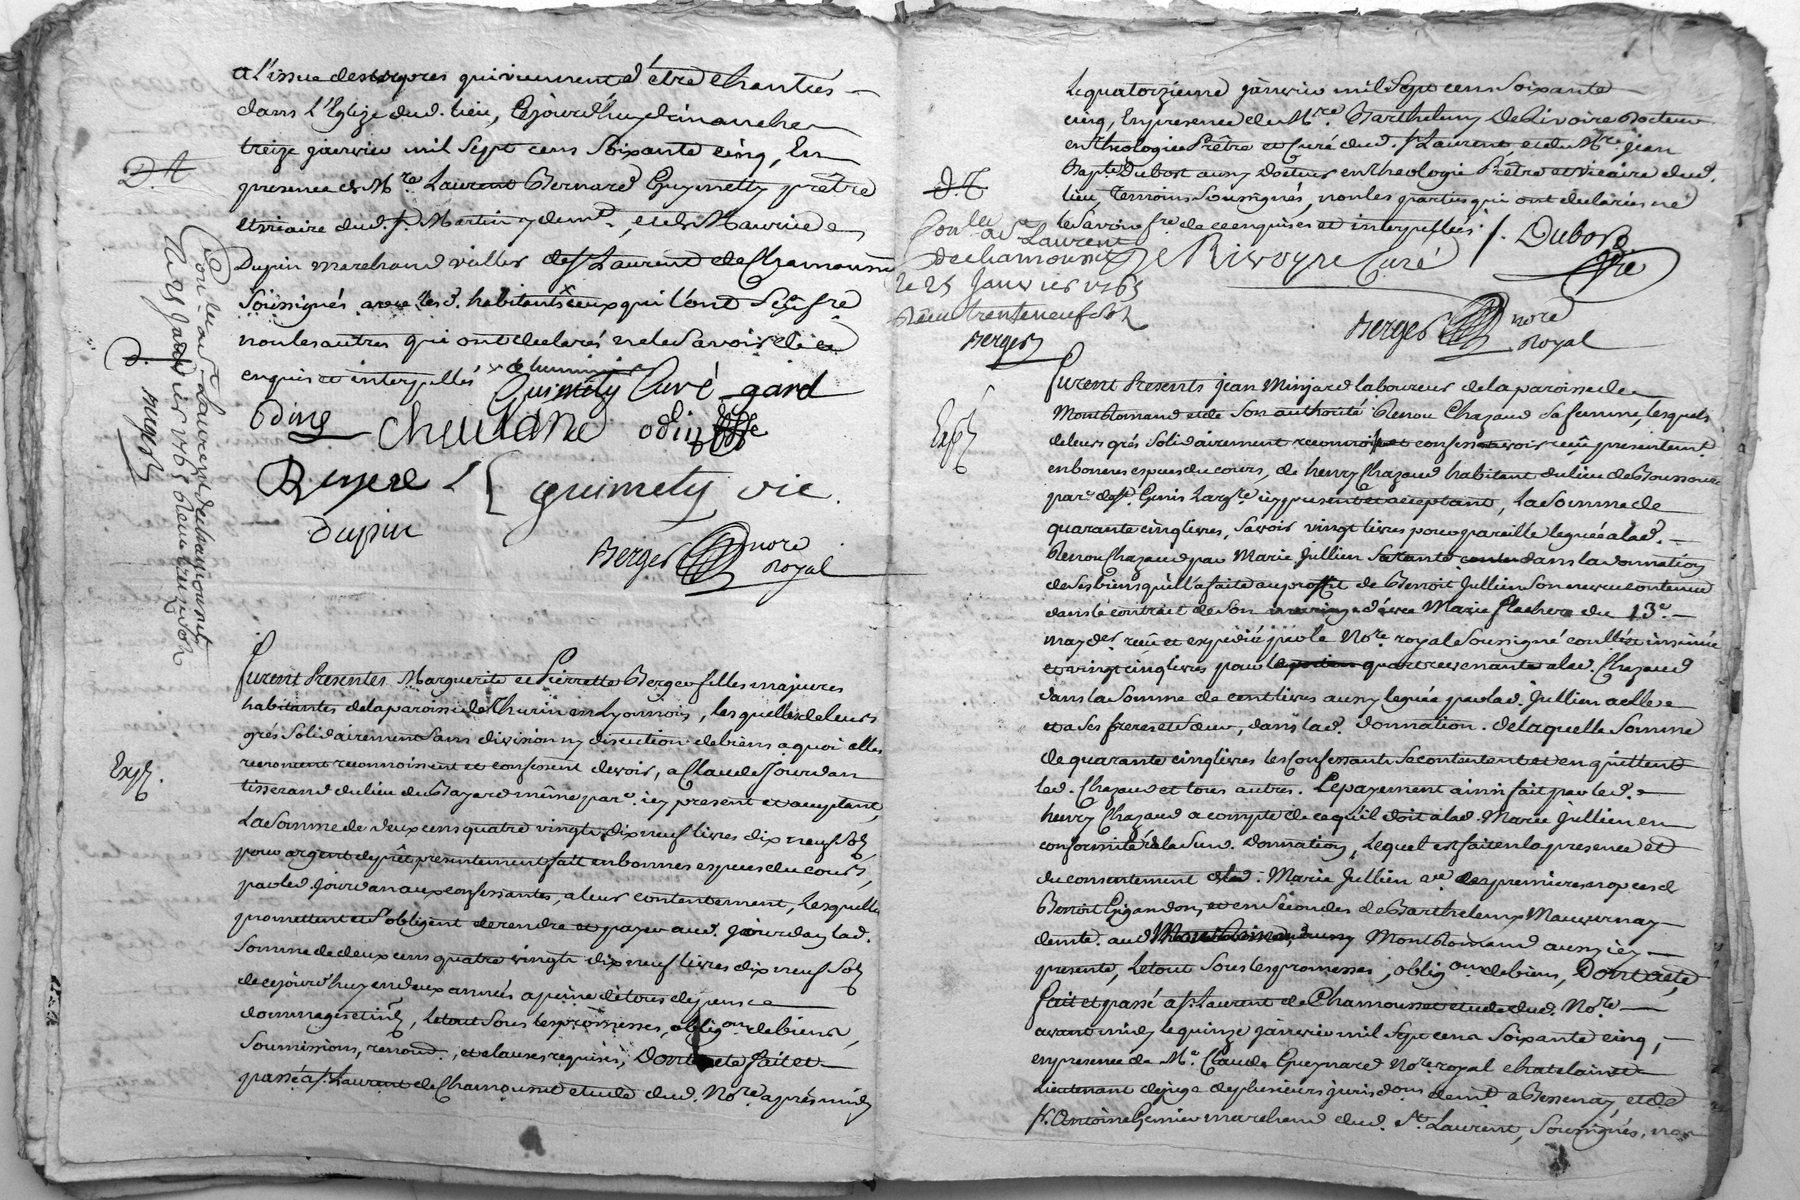 a l'issue des vepres qui viennent d'être chantées
dans l'Eglize dud. lieu, Cejourd'huy dimanche
treize janvier mil sept cens soixante cinq, En
presence de Mre. Laurent Bernard Guymetty prêtre
et vicaire dud. St. Martin y demt., et de Sr Maurice
Dupin marchand de St Laurent de Chamousset
soussignés avec les d. habitants ceux qui l'ont sçeu fre
non les autres qui ont declarés ne le savoir de ce
enquis et interpellés
Guimety Curé gard
Oding Cheuzdne odin
Ruyere guimety vic.
Dupin
Berger nore
Royal
D. t
Con.lé a St. Laurent de chamousset
le 25 Janvier 1765 Reçu treize sols
Berger
furent Presentes Marguerite et Pierrette Berger filles majeures
habitantes de la paroisse de Thurin en Lyonnois, lesquelles de leurs
grés solidairement sans division ny discution de biens a quoi elles
renoncent reconnoissent et confessent devoir, a Claude Jourdan
tisserand du lieu du Bayard même parc. icy present et acceptant,
La somme de deux cens quatre vingts dix neuf livres dix neuf sols,
pour argent de prêt presentement fait en bonnes espeçes du cours,
par led. Jourdan aux confessantes, a leur contentement, Lesquelles
promettent et s'obligent de rendre et payer aud. Jourdan lad.
somme de deux cens quatre vingts dix neuf livres dix neuf sols
de cejourd'huy en deux années a peine de tous depens
dommages et int., le tout sous les promesses, oblig.on de biens,
soumissions, renond., et clauses requises, Dont acte fait et
passé a St. Laurent de Chamousset etude dud. Nore. après midy
Exp.
Le quatorzieme janvier mil sept cens soixante
cinq, En presence de Mre. Barthelemy De Rivoire Docteur
en theologie Prêtre et Curé dud. St Laurent et de Mre. jean
Bapte. Dubost aussy docteur en theologie Prêtre et vicaire dud.
lieu, Temoins soussignés, non les parties qui ont declarées ne
le savoir fre. de ce enquises et interpellées.
De Rivoyre Curé Dubost
ptre
Berger nore
Royal
D. t
Con.lé a St Laurent
de chamousset
le 25 Janvier 1765
Reçu trente neuf sols
Berger
furent Presents jean Minjard laboureur de la paroisse de
Montromand et de son authorité Benou Chazaud sa femme, lesquels
de leurs grés solidairement reconnoissent et confessent avoir reçu presentemt.
en bonnes espeçes du cours, de henry Chazaud habitant du lieu de
parc. de St. Genis Largre. icy present et acceptant, La somme de
quarante cinq livres, savoir vingt livres pour pareille leguée a lad.
Benou Chazaud par Marie Jullien sa tante dans la donnation
de ses biens qu'il a faite au proffit de Benoit Jullien son neveu contenue
dans le contract de son mariage d'avec Marie flachere du 13e.
may der. reçu et expédié par le Nore. royal soussigné conllé et insinué
et vingt cinq livres pour le quart revenant a lad. Chazaud
dans la somme de cent livres aussy leguée par lad. Jullien a elle
et a ses freres et sœur, dans lad. donnation. De laquelle somme
de quarante cinq livres les confessants se contentent et en quittent
led. Chazaud et tous autres. Le payement ainsi fait par led.
henry Chazaud a compte de ce qu'il doit a lad. Marie Jullien en
conformité de la sud. donnation, Lequel est fait en la presence et
du consentement de lad. Marie Jullien ve. des premieres nopces de
Benoit Grigandon, et en secondes de Barthelemy Mauvernay
demte. aud Montromand aussy icy
presente, Le tout sous les promesses, oblig.ons de biens, Dont acte,
fait et passé a St. Laurent de Chamousset etude dud. Nore.
avant midy le quinze janvier mil sept cens soixante cinq,
en presence de Me. Claude Gueynard Nore royal chatelain et
Lieutenant de juge de plusieurs jurisdons. demt a Bessenay, et de
Sr. Antoine Grenier marchand dud. St. Laurent, soussignés, non
Exp.